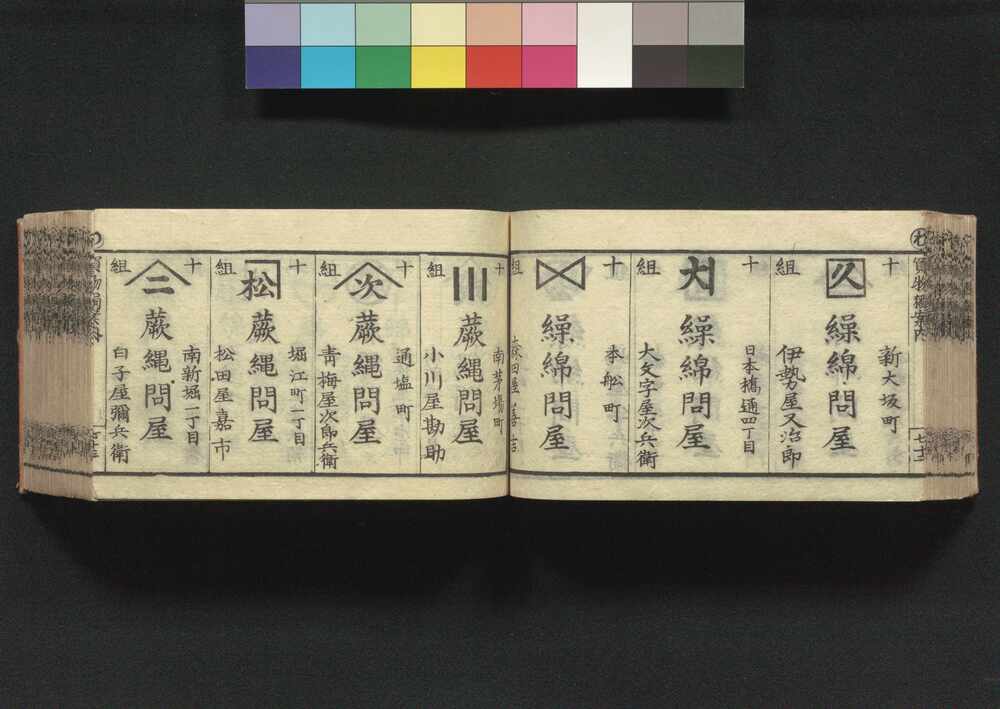 買物獨案内
十 新大坂町
久 繰綿問屋
組 伊勢屋又治郎
十 日本橋通四丁目
繰綿問屋
組 大文字屋次兵衛
十 本舩町
繰綿問屋
組 田屋善吉
十 南茅場町
蕨縄問屋
組 小川屋勘助
十 通塩町
次 蕨縄問屋
組 青梅屋次郎兵衛
十 堀江町一丁目
松 蕨縄問屋
組 松田屋嘉市
十 南新堀一丁目
二 蕨縄問屋
組 白子屋彌兵衛